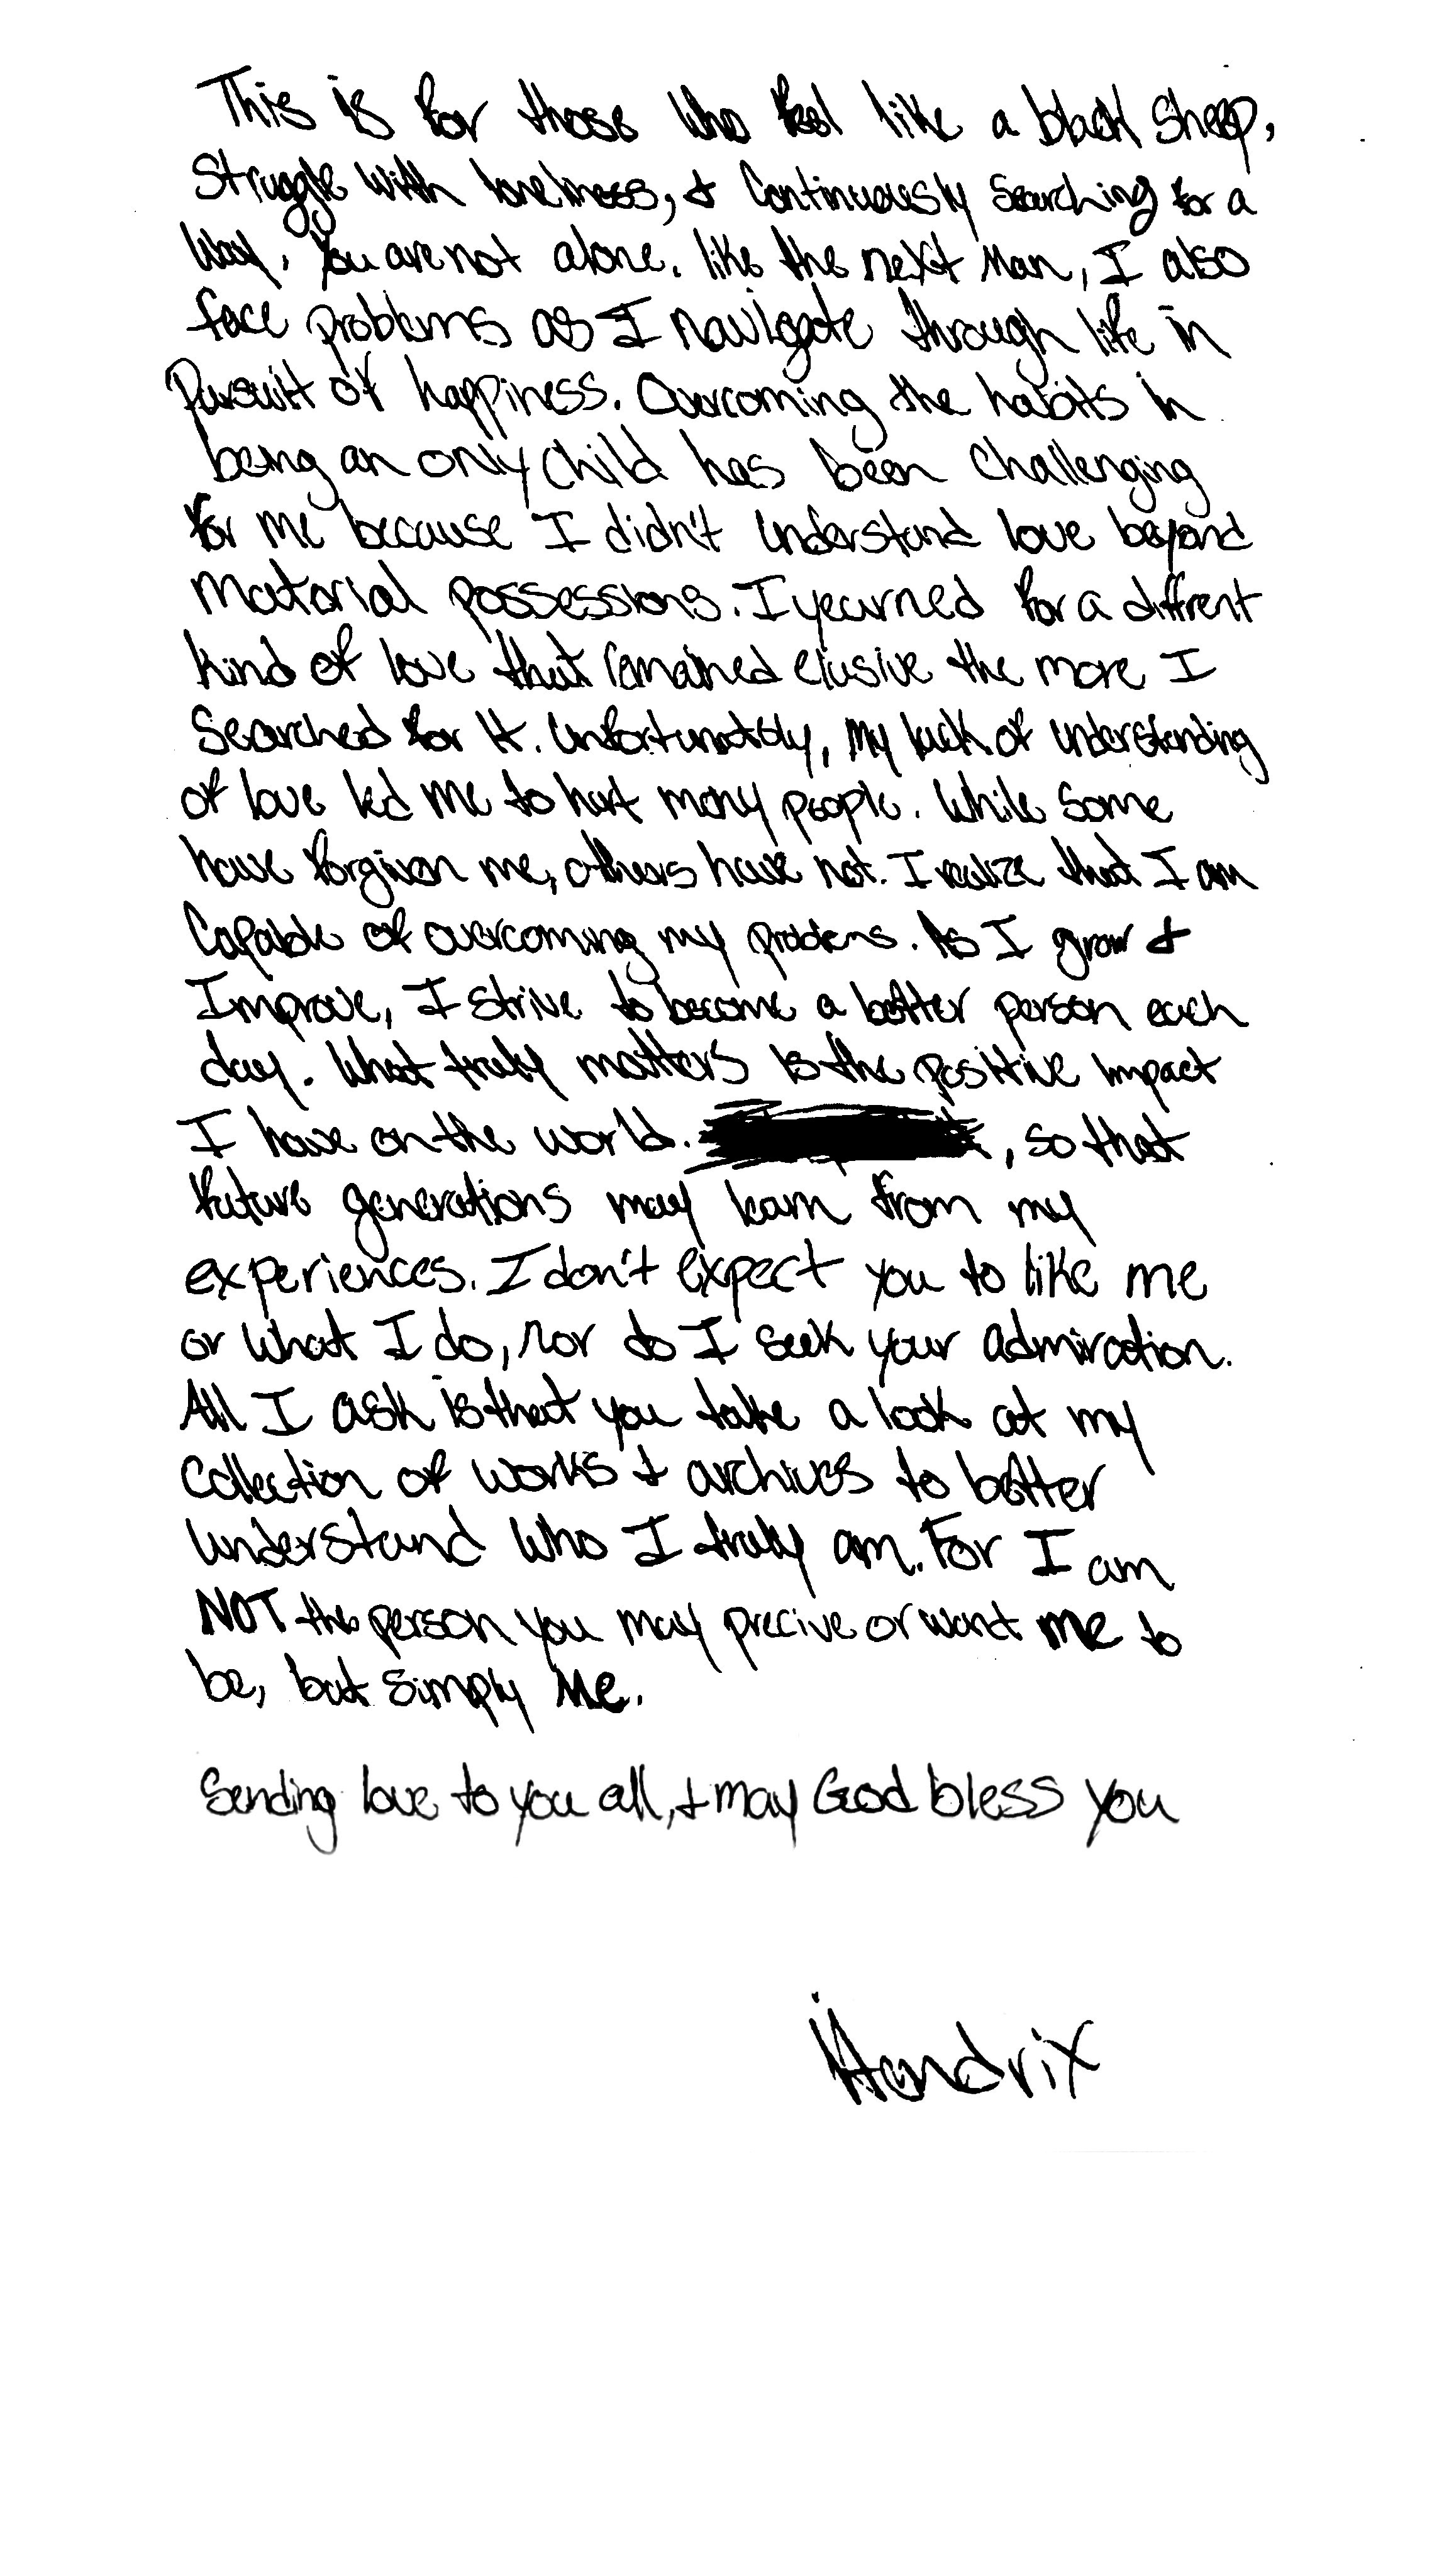 This is for those who feel like a black sheep,
Struggle with loneliness, & Continuously Searching for a
Way. You are not alone. like the next Man, I also
face problems as I navigate through life in
Pursuit of happiness. Overcoming the habits in
being an only child has been challenging
for me because I didn't understand love beyond
Material possessions. I yearned for a diffrent
kind of love that remained elusive the more I
Searched for it. Unfortunately, my lack of understanding
of love led me to hurt many people. While some
have forgiven me, others have not. I realize that I am
Capable of overcoming my problems. As I grow &
Improve, I strive to become a better person each
day. What truly matters is the positive impact
I have on the world. , so that
future generations may learn from my
experiences. I don't expect you to like me
or what I do, nor do I seek your admiration.
All I ask is that you take a look at my
Collection of works & archives to better
understand who I truly am. For I am
NOT the person you may precive or want me to
be, but simply Me.
Sending love to you all, & may God bless you
iHendrix